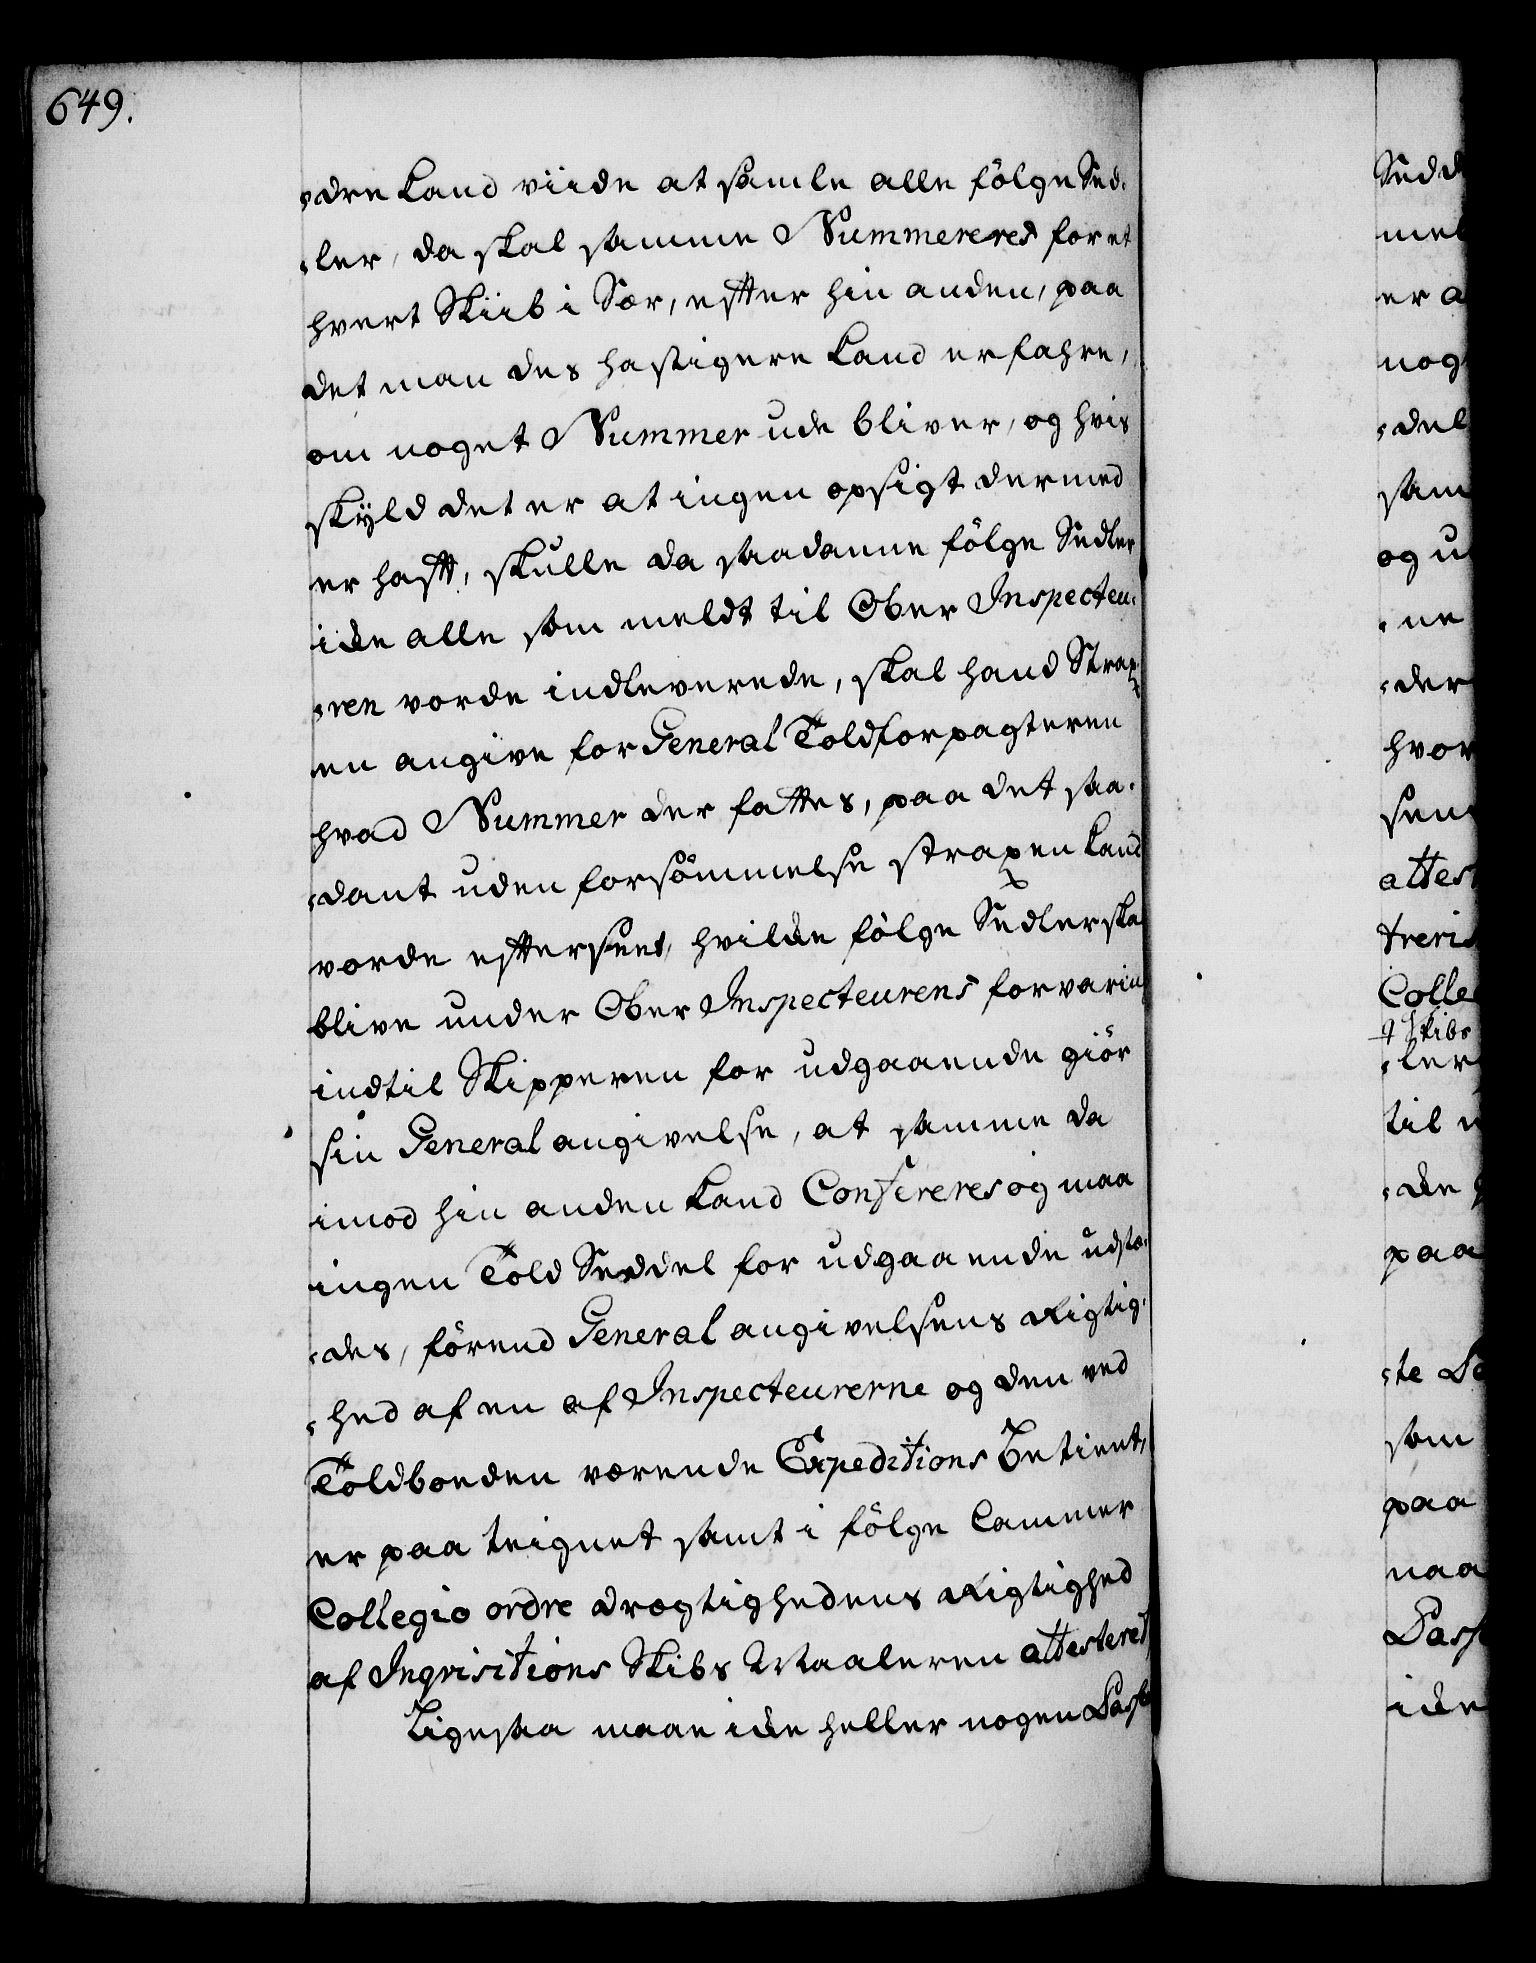 649.
dre Kand viide at samle alle følge Sed-
ler, da skal samme Nummereres for et
hvert Skiib i Sær, efter hin anden, paa
det man des hastigere Kand erfahre,
om noget Nummer ude bliver, og hvis
skyld det er at ingen opsigt dermed
er hafft, skulle da saadanne følge Sedler
icke alle som meldt til Ober Inspecteu-
ren vorde indleverede, skal hand Strax-
en angive for General Toldforpagteren
hvad Nummer der fattes, paa det saa-
dant uden forsømmelse straxen Kand
vorde efterseet, hvilcke følge Sedler ska
blive under Ober Inspecteurens forvarin
indtil Skipperen for udgaaende giør
sin General angivelse, at samme da
imod hin anden Kand Confereres og maa
ingen Told Seddel for udgaaende udstæ-
des, førend General angivelsens Rigtig-
hed af en af Inspecteurerne og den ved
Toldboeden værende Expeditions Betient,
er paa teignet samt i følge Cammer
Collegio ordre drægtighedens Rigtighed
af Inqvisitions Skibs Maaleren attesteret,
Ligesaa maae icke heller nogen Passe
Sedd
mel
er a
nog
del
sam
og u
ne
der
hvor
sen
attes
treri
Colle
Skibs
ler
til
de
paa
te
som
paa
naa
Pass
icke